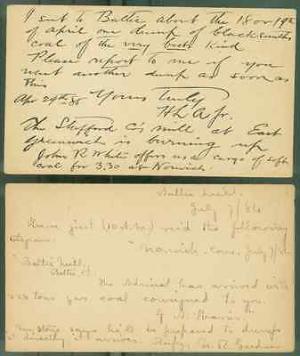 I sent to Baltic about the 18 or 19th
of april one dump of blacksmiths
coal of the very best kind
Please report to me if you
want another dump as soon as
this
Apr 29th 86 Yours truly
H L A Jr.
The Shefford Co's mill at East
Greenwich is burning up
John R White offers us a cargo of soft
coal for 3.30 at Norwich.
Baltic Mill.
July 7/86
Have just rec'd the following
telegram:
"Norwich, Conn, July 7/86
"Baltic Mill,
Baltic Ct.
The Admiral has arrived with
tons gas coal consigned to you.
says he is prepared to dump
it directly it arrives.
Gardner